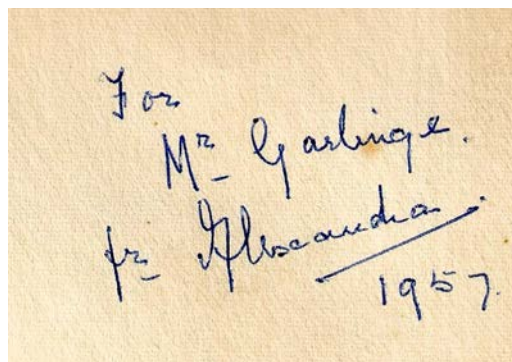 For
Mr Garlinge.
fr Alexandra.
1957.